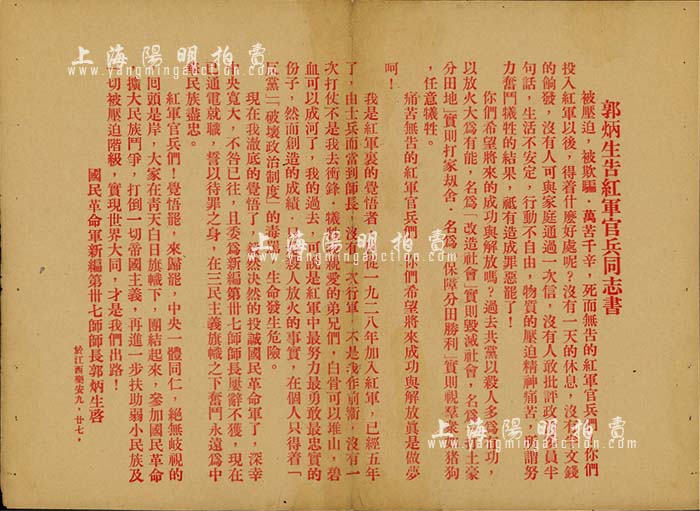 郭炳生告紅軍官兵同志書
被壓迫，被欺騙·萬苦千辛，死而無告的紅軍官兵們！你們
投入紅軍以後，得着什麽好處呢？沒有一天的休息，沒有半文錢
的餉發，沒有人可與家庭通過一次信，沒有人敢批評政治委員半
句話，生活不安定，行動不自由，物質的壓迫精神痛苦，所謂努
力奮鬥犧牲的結果，祗有造成罪惡罷了！
你們希望將來的成功與解放嗎？過去共黨以殺人多爲成功，
以放火大爲有能，名爲「改造社會」實則毀滅社會，名爲「打土豪
分田地」實則打家刼舍·名爲「保障分田勝利」實則視羣衆如猪狗
，任意犧牲。
痛苦無告的紅軍官兵們！你們希望將來成功與解放眞是做夢
呵！
我是紅軍裏的覺悟者，我從一九二八年加入紅軍，已經五年
了，由士兵而當到師長，沒有一次行軍，不是我作前衛，沒有一
次打仗不是我去衝鋒·犧牲我親愛的弟兄們，白骨可以堆山，碧
血可以成河了，我的過去，可說是紅軍中最努力最勇敢最忠實的
份子，然而創造的成績·只是殺人放火的事實，在個人只得着「
反黨」「破壞政治制度」的毒謗，生命發生危險。
現在我澈底的覺悟了，毅然决然的投誠國民革命軍了，深幸
中央寬大，不咎已往，且委爲新編第卅七師師長屢辭不獲，現在
已通電就職，誓以待罪之身，在三民主義旗幟之下奮鬥永遠爲中
華民族盡忠。
紅軍官兵們！覺悟罷，來歸罷，中央一體同仁，絕無岐視的
，回頭是岸，大家在靑天白日旗幟下，團結起來，參加國民革命
，擴大民族鬥爭，打倒一切帝國主義，再進一步扶助弱小民族及
一切被壓迫階級，實現世界大同，才是我們出路！
國民革命軍新編第卅七師師長郭炳生啓
於江西樂安九，廿七，
上海陽明拍賣
www.yangmingauction.com
上海陽明拍賣
www.yangmingauction.com
上海陽明拍賣
www.yangmingauction.com
上海陽明拍賣
www.yangmingauction.com